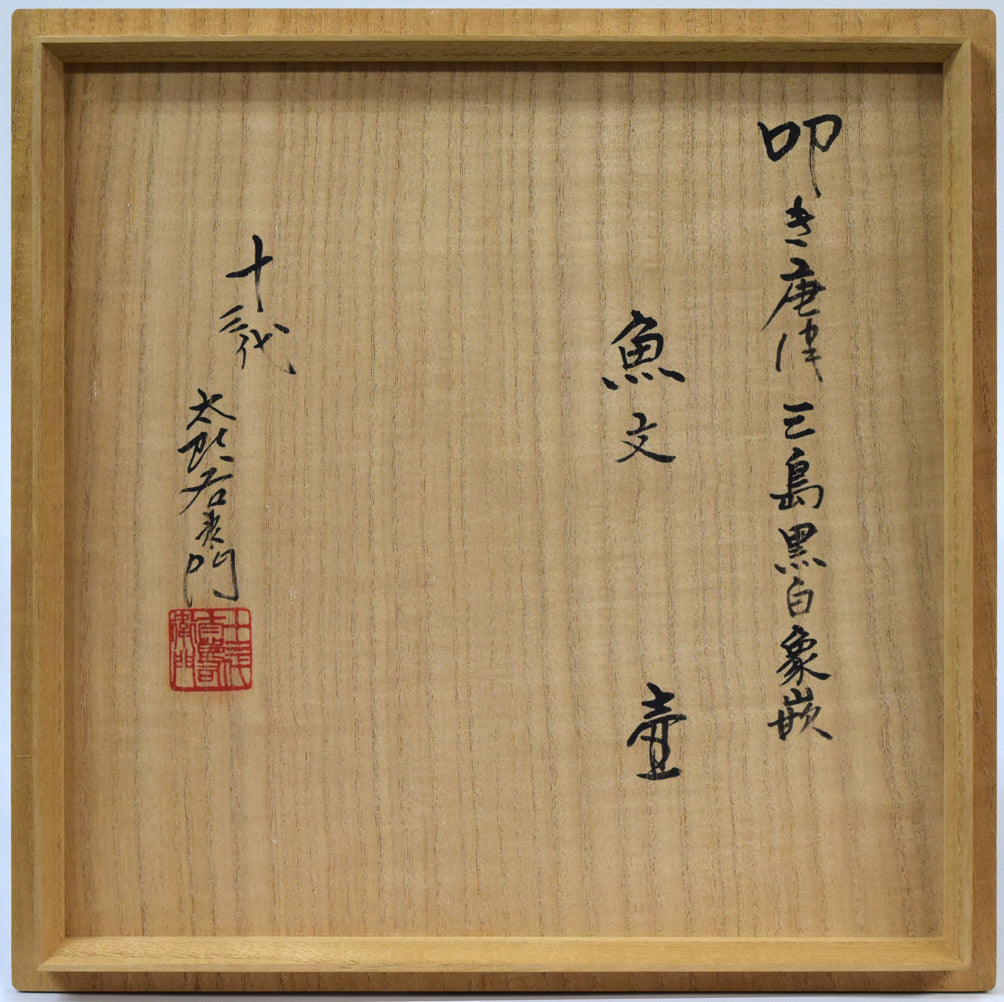 叩き唐津三島黒白象嵌
魚文 壷
十三代
太郎右衛門